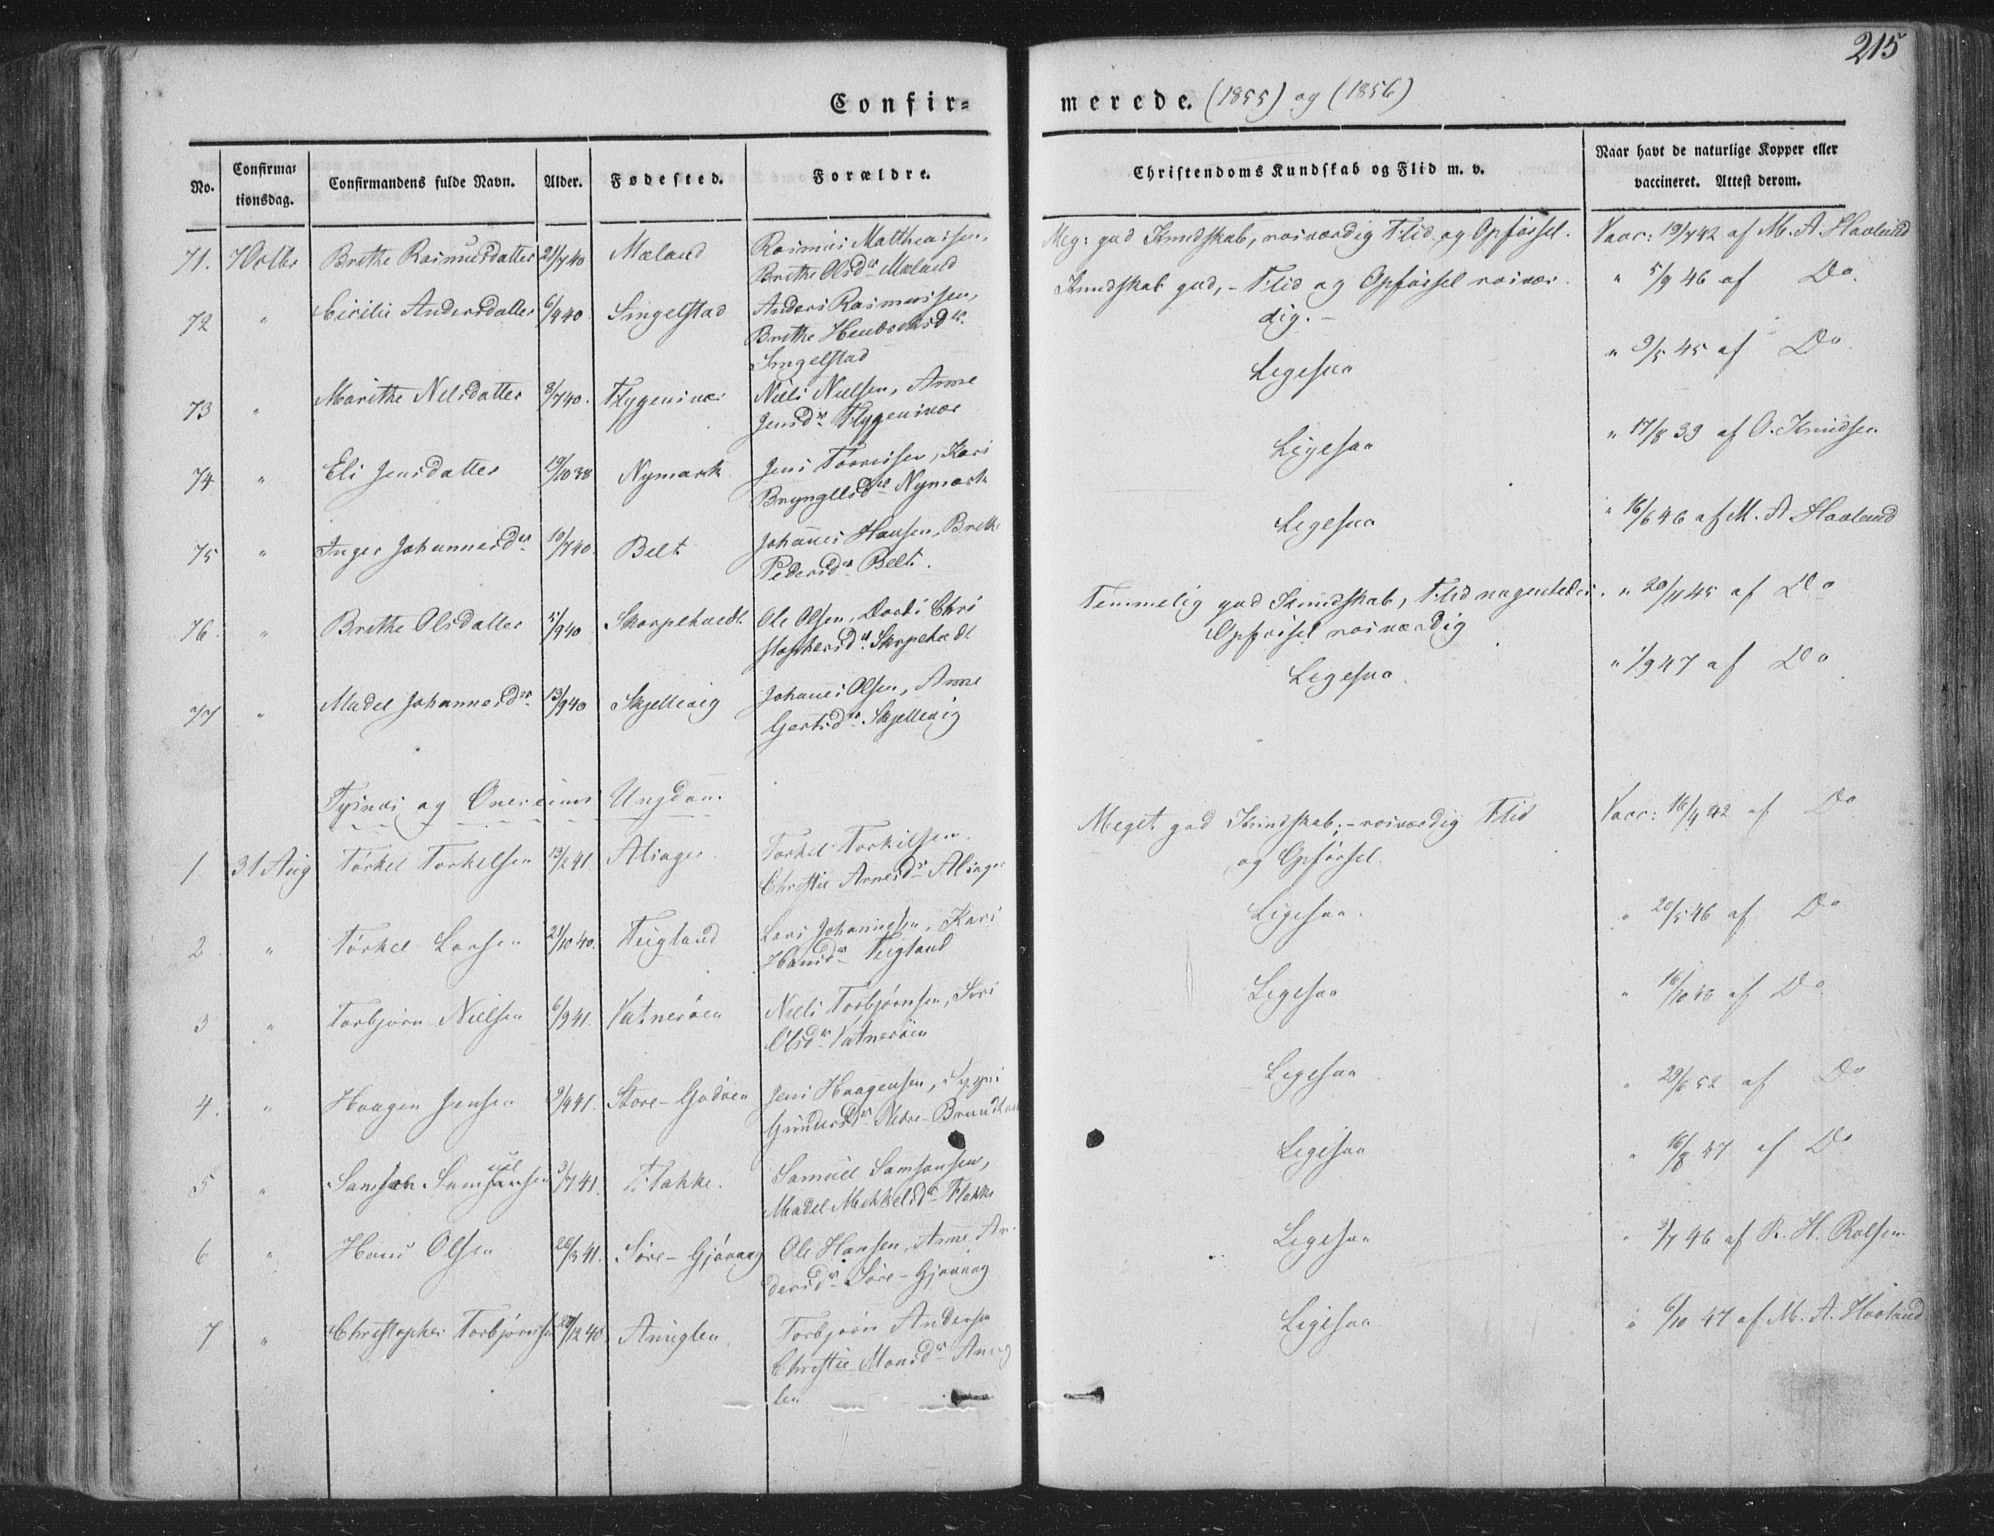 215
Confir-
merede. (1855) og (1856)
No.
Confirma-
tionsdag.
Confirmandens fulde Navn.
Alder.
Fødested.
Forældre.
Christendoms Kundskab og Flid m. v.
Naar havt de naturlige Kopper eller
vaccineret. Attest derom.
71. 7 Octbr Brithe Rasmusdatter 21/7 40 Mæland Rasmus Matthiassen,
Brithe Olsdr Mæland
Meg: god Kundskab, rosværdig Flid og Opførsel. Vacc: 19/7 42 af M. A. Haaland
72 " Cicilie Andersdatter 6/9 40 Singelstad Anders Rasmussen,
Brithe
Singelstad
Kundskab god, - Flid og Opførsel rosvær
dig. -
" 5/9 46 af Do
73 " Marithe Nilsdatter 8/7 40. Flygensvær Niels Nielsen, Anne
Jensdr Flygensvær
Ligesaa
" 9/5 45 af Do
74 " Eli Jensdatter 19/10 38 Nymark Jens , Kari
Bryngelsdr Nymark
Ligesaa
" 17/8 39 af O. Knudsen
75 " Inger Johannesdr 10/7 40. Belt Johannes Hansen, Brithe
Pedersdr Belt.
Ligesaa
" 16/6 46 af M. A. Haaland
76. " Brithe Olsdatter 5/9 40 Skorpeholdt Ole Olsen, Dorthe Chri
stophersdr Skorpeholdt
Temmelig god Kundskab, Flid nogenledes.
Opførsel rosværdig
" 20/11 45 af Do
77 " Madel Johannesdr 13/9 40 Skjellevig Johannes Olsen, Anne
Gertsdr Skjellevig
Ligesaa.
" 1/9 47 af Do
Tysnæs og Onereims Ungdom
1. 31 Aug Torkel Torkelsen 13/2 41. Alsager. Torkel Torkilsen.
Christie Arnesdr Alsager
Meget god Kundskab; - rosværdig Flid
og Opførsel.
Vacc: 16/9 42 af Do
2 " Torkel Larsen 21/10 40. Teigland Lars Johannesen, Kari
Hansdr Teigland
Ligesaa.
" 20/5 46 af Do
3 " Torbjørn Nielsen 6/3 41. Vatnerøen Niels Torbjørnsen, Siri
Olsdr Vatnerøen
Ligesaa
" 16/10 48 af Do
4. " Haagen Jensen 9/4 41. Store-Godøen Jens Haagensen,
Gundersdr Nedre-
Ligesaa
" 29/6 52 af Do
5 " Samson Samuelsen 3/7 41. Flakke. Samuel Samsonsen,
Madel Mikkelsdr Flakke
Ligesaa
" 16/8 47 af Do
6 " Hans Olsen 26/3 41. Søre-Gjøvaag Ole Hansen, Anne An
dersdr Søre-Gjøvaag
Ligesaa
" 3/7 46 af R. H. Rolfsen
7 " Christopher Torbjørnsen 29/12 40. Anuglen. Torbjørn Andersen
Christie Monsdr Anug
len
Ligesaa
" 6/10 47 af M. A. Haaland